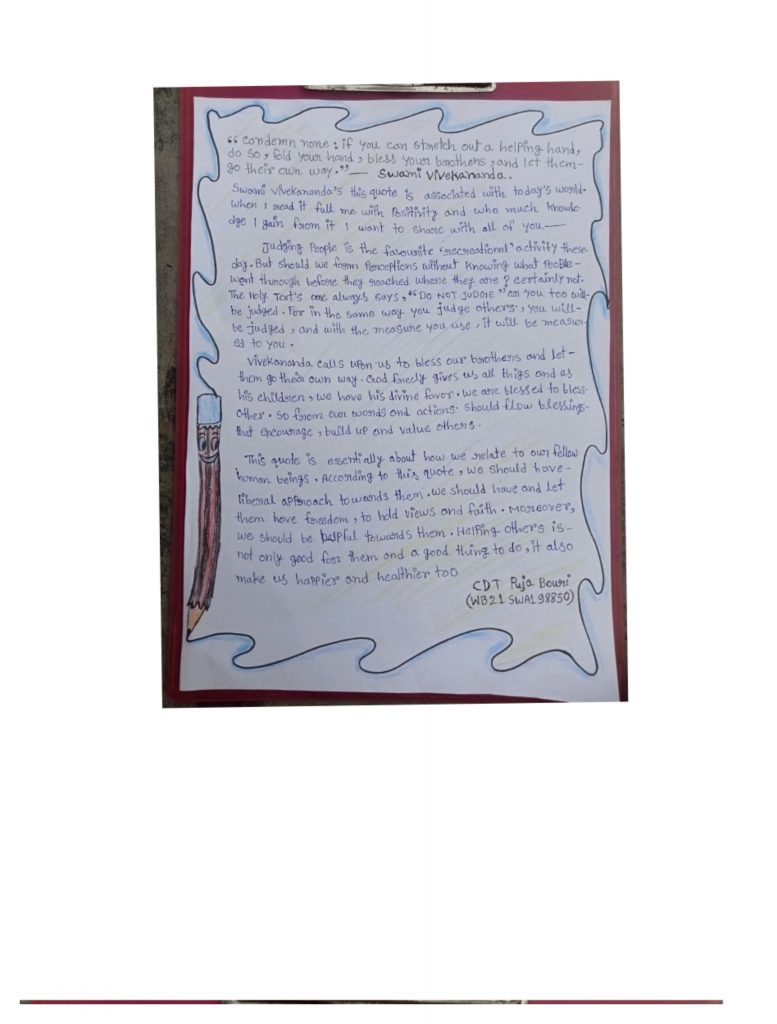 “Condemn none: if you can stretch out a helping hand,
do so, fold your hand, bless your brothers, and let them-
go their own way.”— Swami Vivekananda.
Swami Vivekananda's this quote is associated with today's world.
When I read it full me with Positivity and who much knowle-
dge I gain from it I want to share with all of you —
Judging People is the favourite 'recreational' activity these-
day. But should we form Perceptions without knowing what People-
went through before they reached where they are? certainly not.
The Holy Text's one always says, “DO NOT JUDGE” or you too will-
be judged. For in the same way you judge others, you will-
be judged, and with the measure you use, it will be measur-
ed to you.
Vivekananda calls upon us to bless our brothers and let-
them go their own way. God freely gives us all thigs and as
his children, we have his divine favor. we are blessed to bless-
other. So from our words and actions. Should flow blessings-
that encourage, build up and value others.
This quote is essentially about how we relate to our fellow
human beings. According to this quote, we should have-
liberal approach towards them. we should have and let
them have freedom, to hold views and faith. Moreover,
we should be helpful towards them. Helping others is-
not only good for them and a good thing to do, it also
make us happier and healthier too
CDT Puja Bouri
(WB21SWA198850)